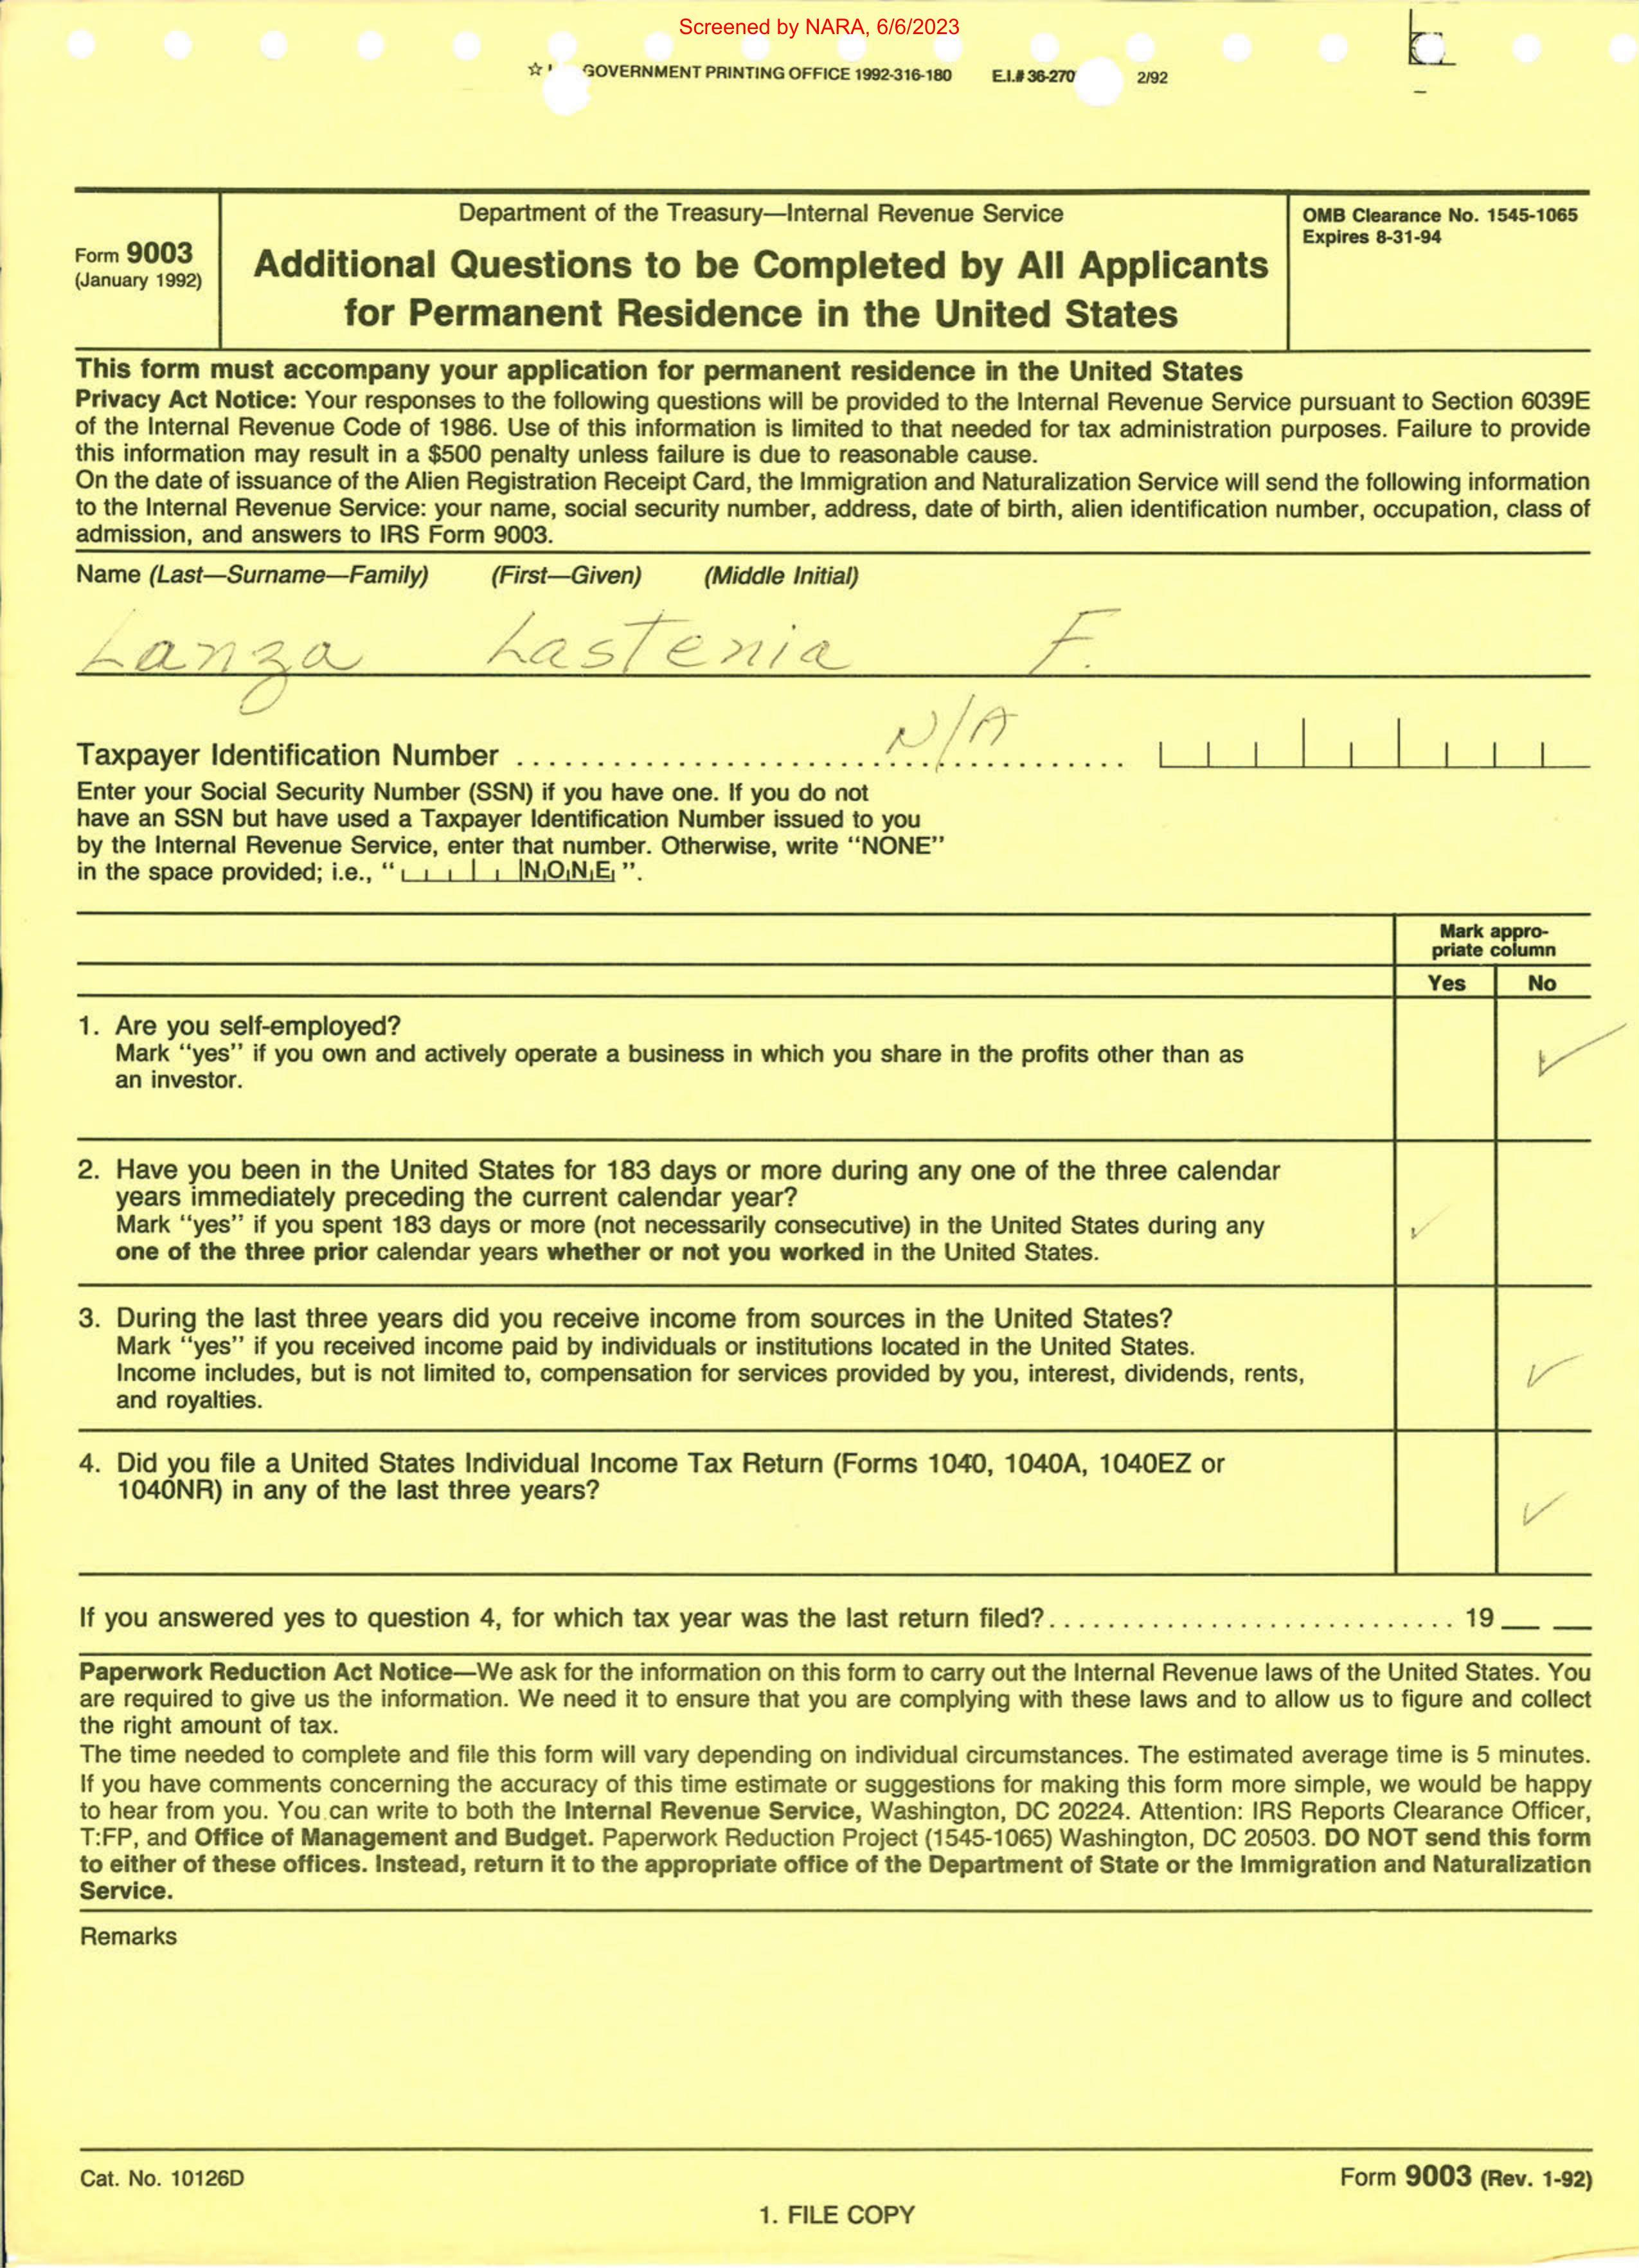 Screened by NARA, 6/6/2023
☆ GOVERNMENT PRINTING OFFICE 1992-316-180 E.I.# 36-270 2/92
Form 9003
(January 1992)
Department of the Treasury—Internal Revenue Service
Additional Questions to be Completed by All Applicants
for Permanent Residence in the United States
OMB Clearance No. 1545-1065
Expires 8-31-94
This form must accompany your application for permanent residence in the United States
Privacy Act Notice: Your responses to the following questions will be provided to the Internal Revenue Service pursuant to Section 6039E
of the Internal Revenue Code of 1986. Use of this information is limited to that needed for tax administration purposes. Failure to provide
this information may result in a $500 penalty unless failure is due to reasonable cause.
On the date of issuance of the Alien Registration Receipt Card, the Immigration and Naturalization Service will send the following information
to the Internal Revenue Service: your name, social security number, address, date of birth, alien identification number, occupation, class of
admission, and answers to IRS Form 9003.
Name (Last—Surname—Family) (First—Given) (Middle Initial)
Lanza Lastenia F.
Taxpayer Identification Number ........................................ N/A
Enter your Social Security Number (SSN) if you have one. If you do not
have an SSN but have used a Taxpayer Identification Number issued to you
by the Internal Revenue Service, enter that number. Otherwise, write “NONE”
in the space provided; i.e., “ N O N E ”.
Mark appro-
priate column
Yes No
1. Are you self-employed?
Mark “yes” if you own and actively operate a business in which you share in the profits other than as
an investor. ✓
2. Have you been in the United States for 183 days or more during any one of the three calendar
years immediately preceding the current calendar year?
Mark “yes” if you spent 183 days or more (not necessarily consecutive) in the United States during any ✓
one of the three prior calendar years whether or not you worked in the United States.
3. During the last three years did you receive income from sources in the United States?
Mark “yes” if you received income paid by individuals or institutions located in the United States.
Income includes, but is not limited to, compensation for services provided by you, interest, dividends, rents, ✓
and royalties.
4. Did you file a United States Individual Income Tax Return (Forms 1040, 1040A, 1040EZ or
1040NR) in any of the last three years? ✓
If you answered yes to question 4, for which tax year was the last return filed?............................ 19__ __
Paperwork Reduction Act Notice—We ask for the information on this form to carry out the Internal Revenue laws of the United States. You
are required to give us the information. We need it to ensure that you are complying with these laws and to allow us to figure and collect
the right amount of tax.
The time needed to complete and file this form will vary depending on individual circumstances. The estimated average time is 5 minutes.
If you have comments concerning the accuracy of this time estimate or suggestions for making this form more simple, we would be happy
to hear from you. You can write to both the Internal Revenue Service, Washington, DC 20224. Attention: IRS Reports Clearance Officer,
T:FP, and Office of Management and Budget. Paperwork Reduction Project (1545-1065) Washington, DC 20503. DO NOT send this form
to either of these offices. Instead, return it to the appropriate office of the Department of State or the Immigration and Naturalization
Service.
Remarks
Cat. No. 10126D
Form 9003 (Rev. 1-92)
1. FILE COPY